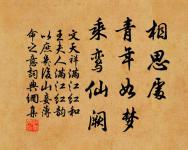 相思處
青年如梦
乘鸾仙阙
文天祥满江红和
王夫人满江红韵
以庶几后山妾薄
命之意詞典網集